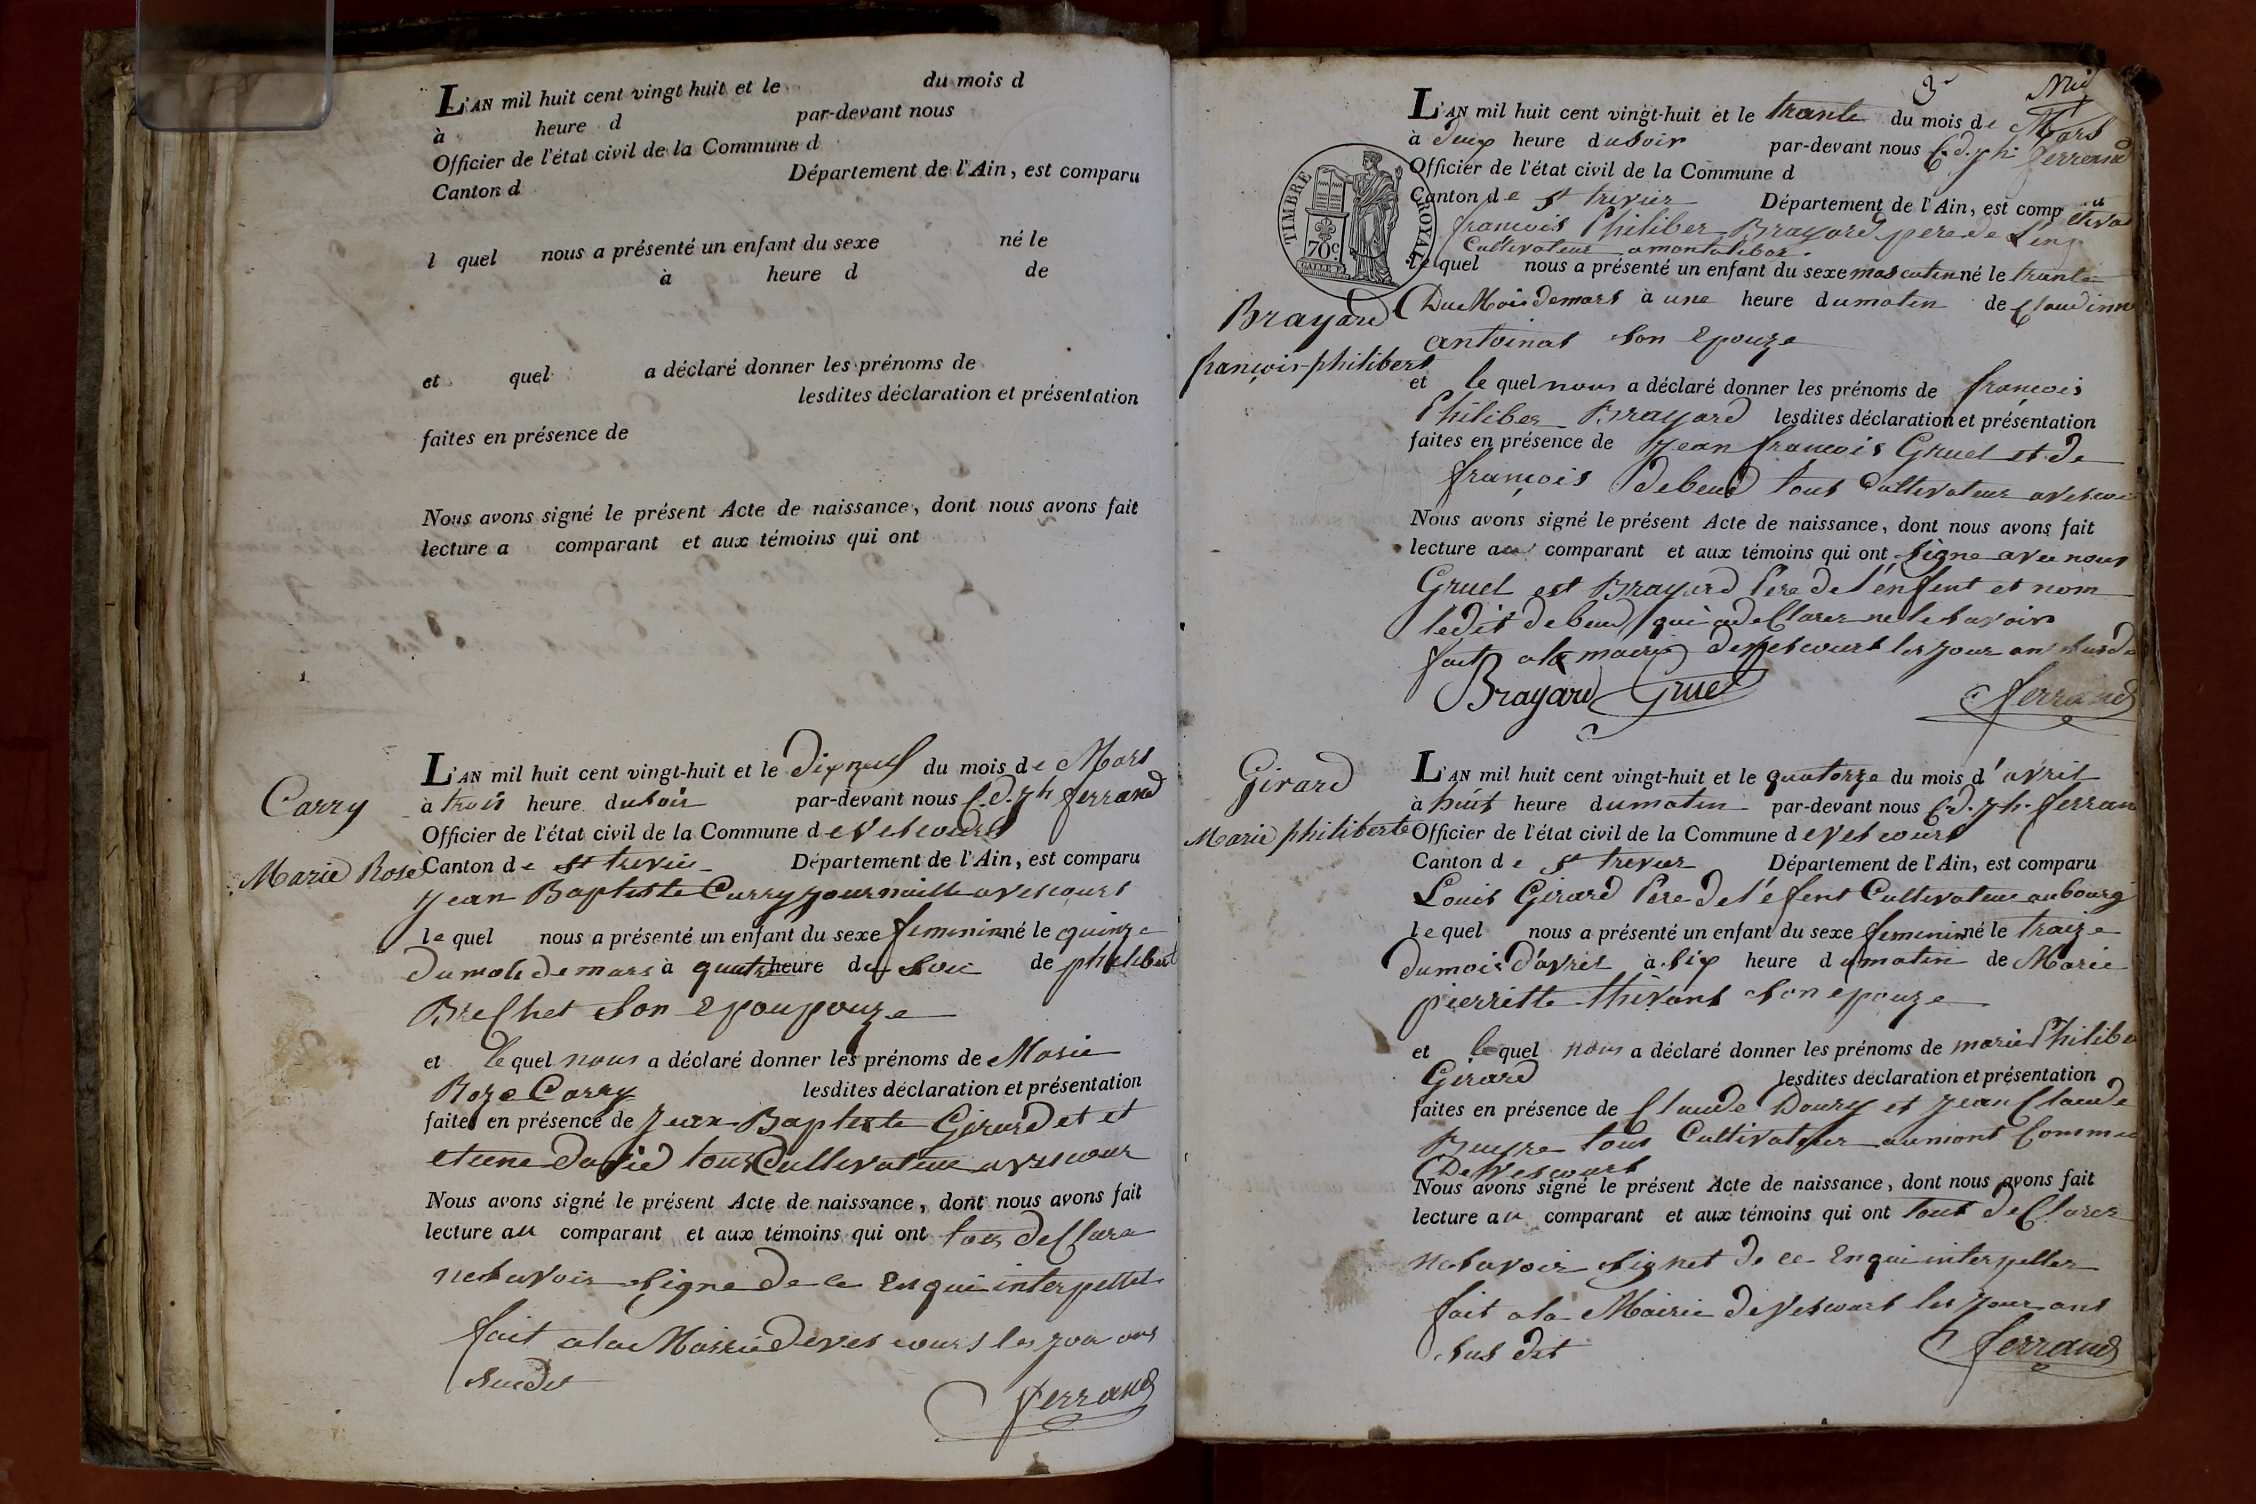 L'AN mil huit cent vingt huit et le du mois d
à heure d par-devant nous
Officier de l'état civil de la Commune d
Canton d Département de l'Ain, est comparu
l quel nous a présenté un enfant du sexe né le
à heure d de
et quel a déclaré donner les prénoms de
lesdites déclaration et présentation
faites en présence de
Nous avons signé le présent Acte de naissance, dont nous avons fait
lecture a comparant et aux témoins qui ont
Carry
Marie Rose
L'AN mil huit cent vingt-huit et le dixneuf du mois de Mars
à trois heure dusoir par-devant nous C.d.jh ferrand
Officier de l'état civil de la Commune de vescours
Canton de st trivier Département de l'Ain, est comparu
jean Baptiste Carry journaille a vescours
le quel nous a présenté un enfant du sexe feminin né le quinze
du mois de mars à quatre heure du soir de philibert
Brechet son epoupouze
et le quel nous a déclaré donner les prénoms de Marie
Roze Carry lesdites déclaration et présentation
faites en présence de jean Baptiste Girard et et
etiene david tous Cultivateur a vescour
Nous avons signé le présent Acte de naissance, dont nous avons fait
lecture au comparant et aux témoins qui ont tous de Clara
ne savoir signe de ce Enqui interpellet
fait a la Mairie de ves cours les jour ans
susdit
ferrand
3e
TIMBRE ROYAL
70c
Brayard
françois-philibert
L'AN mil huit cent vingt-huit et le trante du mois de Mars
à deux heure du soir par-devant nous C.d.jh. ferrand
Officier de l'état civil de la Commune d
Canton de st trivier Département de l'Ain, est comp
francois Philiber Brayard pere de
Cultivateur a montalibor
le quel nous a présenté un enfant du sexe masculin né le trante
Du Mois de mars à une heure du matin de Claudinne
antoinat son epouze
et le quel nous a déclaré donner les prénoms de francois
Philiber Brayard lesdites déclaration et présentation
faites en présence de jean francois Gruel et de
françois debeud tous Cultivateur a vescou
Nous avons signé le présent Acte de naissance, dont nous avons fait
lecture au comparant et aux témoins qui ont signe avec nous
Gruel est Brayard Pere de l'enfent et nom
ledit debeud qui a de Clarer ne le savoir
fait a la mairie de vescours les jour an susdi
Brayard Gruel
ferrand
Girard
Marie philiberte
L'AN mil huit cent vingt-huit et le quatorze du mois d'avril
à huit heure du matin par-devant nous C.d.jh. ferran
Officier de l'état civil de la Commune de vescours
Canton de st trivier Département de l'Ain, est comparu
Louis Girard Pere de l'efent Cultivateur au bourg
le quel nous a présenté un enfant du sexe feminin né le traize
du mois d'avril à six heure du matin de Marie
pierrette thivant son epouze
et le quel nous a déclaré donner les prénoms de marie Philiber
Girard lesdites déclaration et présentation
faites en présence de Claude Doury et jean Claude
Buyre tous Cultivateur au mont Commu
De Vescours
Nous avons signé le présent Acte de naissance, dont nous avons fait
lecture au comparant et aux témoins qui ont tous de Clarer
ne savoir signet de ce Enqui interpeller
fait a la Mairie de vescours les jour ans
sus dit
ferrand